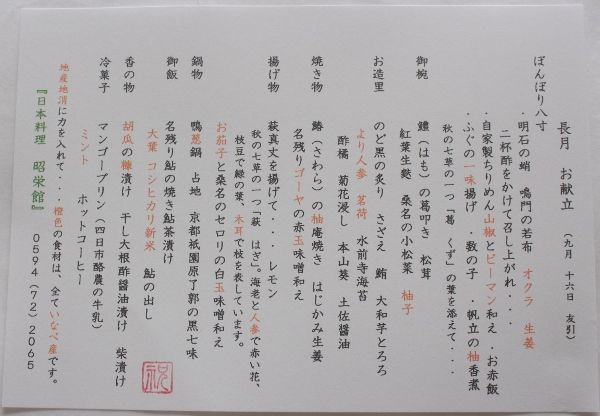 長月 お献立 （九月 十六日 友引）
ぼんぼり八寸
・明石の蛸 鳴門の若布 オクラ 生姜
二杯酢をかけて召し上がれ・・・
・自家製ちりめん山椒とピーマン和え ・お赤飯
・ふぐの一味揚げ ・数の子 ・帆立の柚香煮
秋の七草の一つ「葛 くず」の葉を添えて・・・
御椀 鱧（はも）の葛叩き 松茸
紅葉生麩 桑名の小松菜 柚子
お造里 のど黒の炙り さざえ 鮪 大和芋とろろ
より人参 茗荷 水前寺海苔
酢橘 菊花浸し 本山葵 土佐醤油
焼き物 鰆（さわら）の柚庵焼き はじかみ生姜
名残りゴーヤの赤玉味噌和え
揚げ物 萩真丈を揚げて・・・ レモン
秋の七草の一つ「萩 はぎ」。海老と人参で赤い花、
枝豆で緑の葉、木耳で枝を表しています。
お茄子と桑名のセロリの白玉味噌和え
鍋物 鴨葱鍋 占地 京都祇園原了郭の黒七味
御飯 名残り鮎の焼き鮎茶漬け
大葉 コシヒカリ新米 鮎の出し
香の物 胡瓜の糠漬け 干し大根酢醤油漬け 柴漬け
冷菓子 マンゴープリン（四日市酪農の牛乳）
ミント ホットコーヒー
地産地消に力を入れて・・・橙色の食材は、全ていなべ産です。
『日本料理 昭栄館』 0594（72）2065